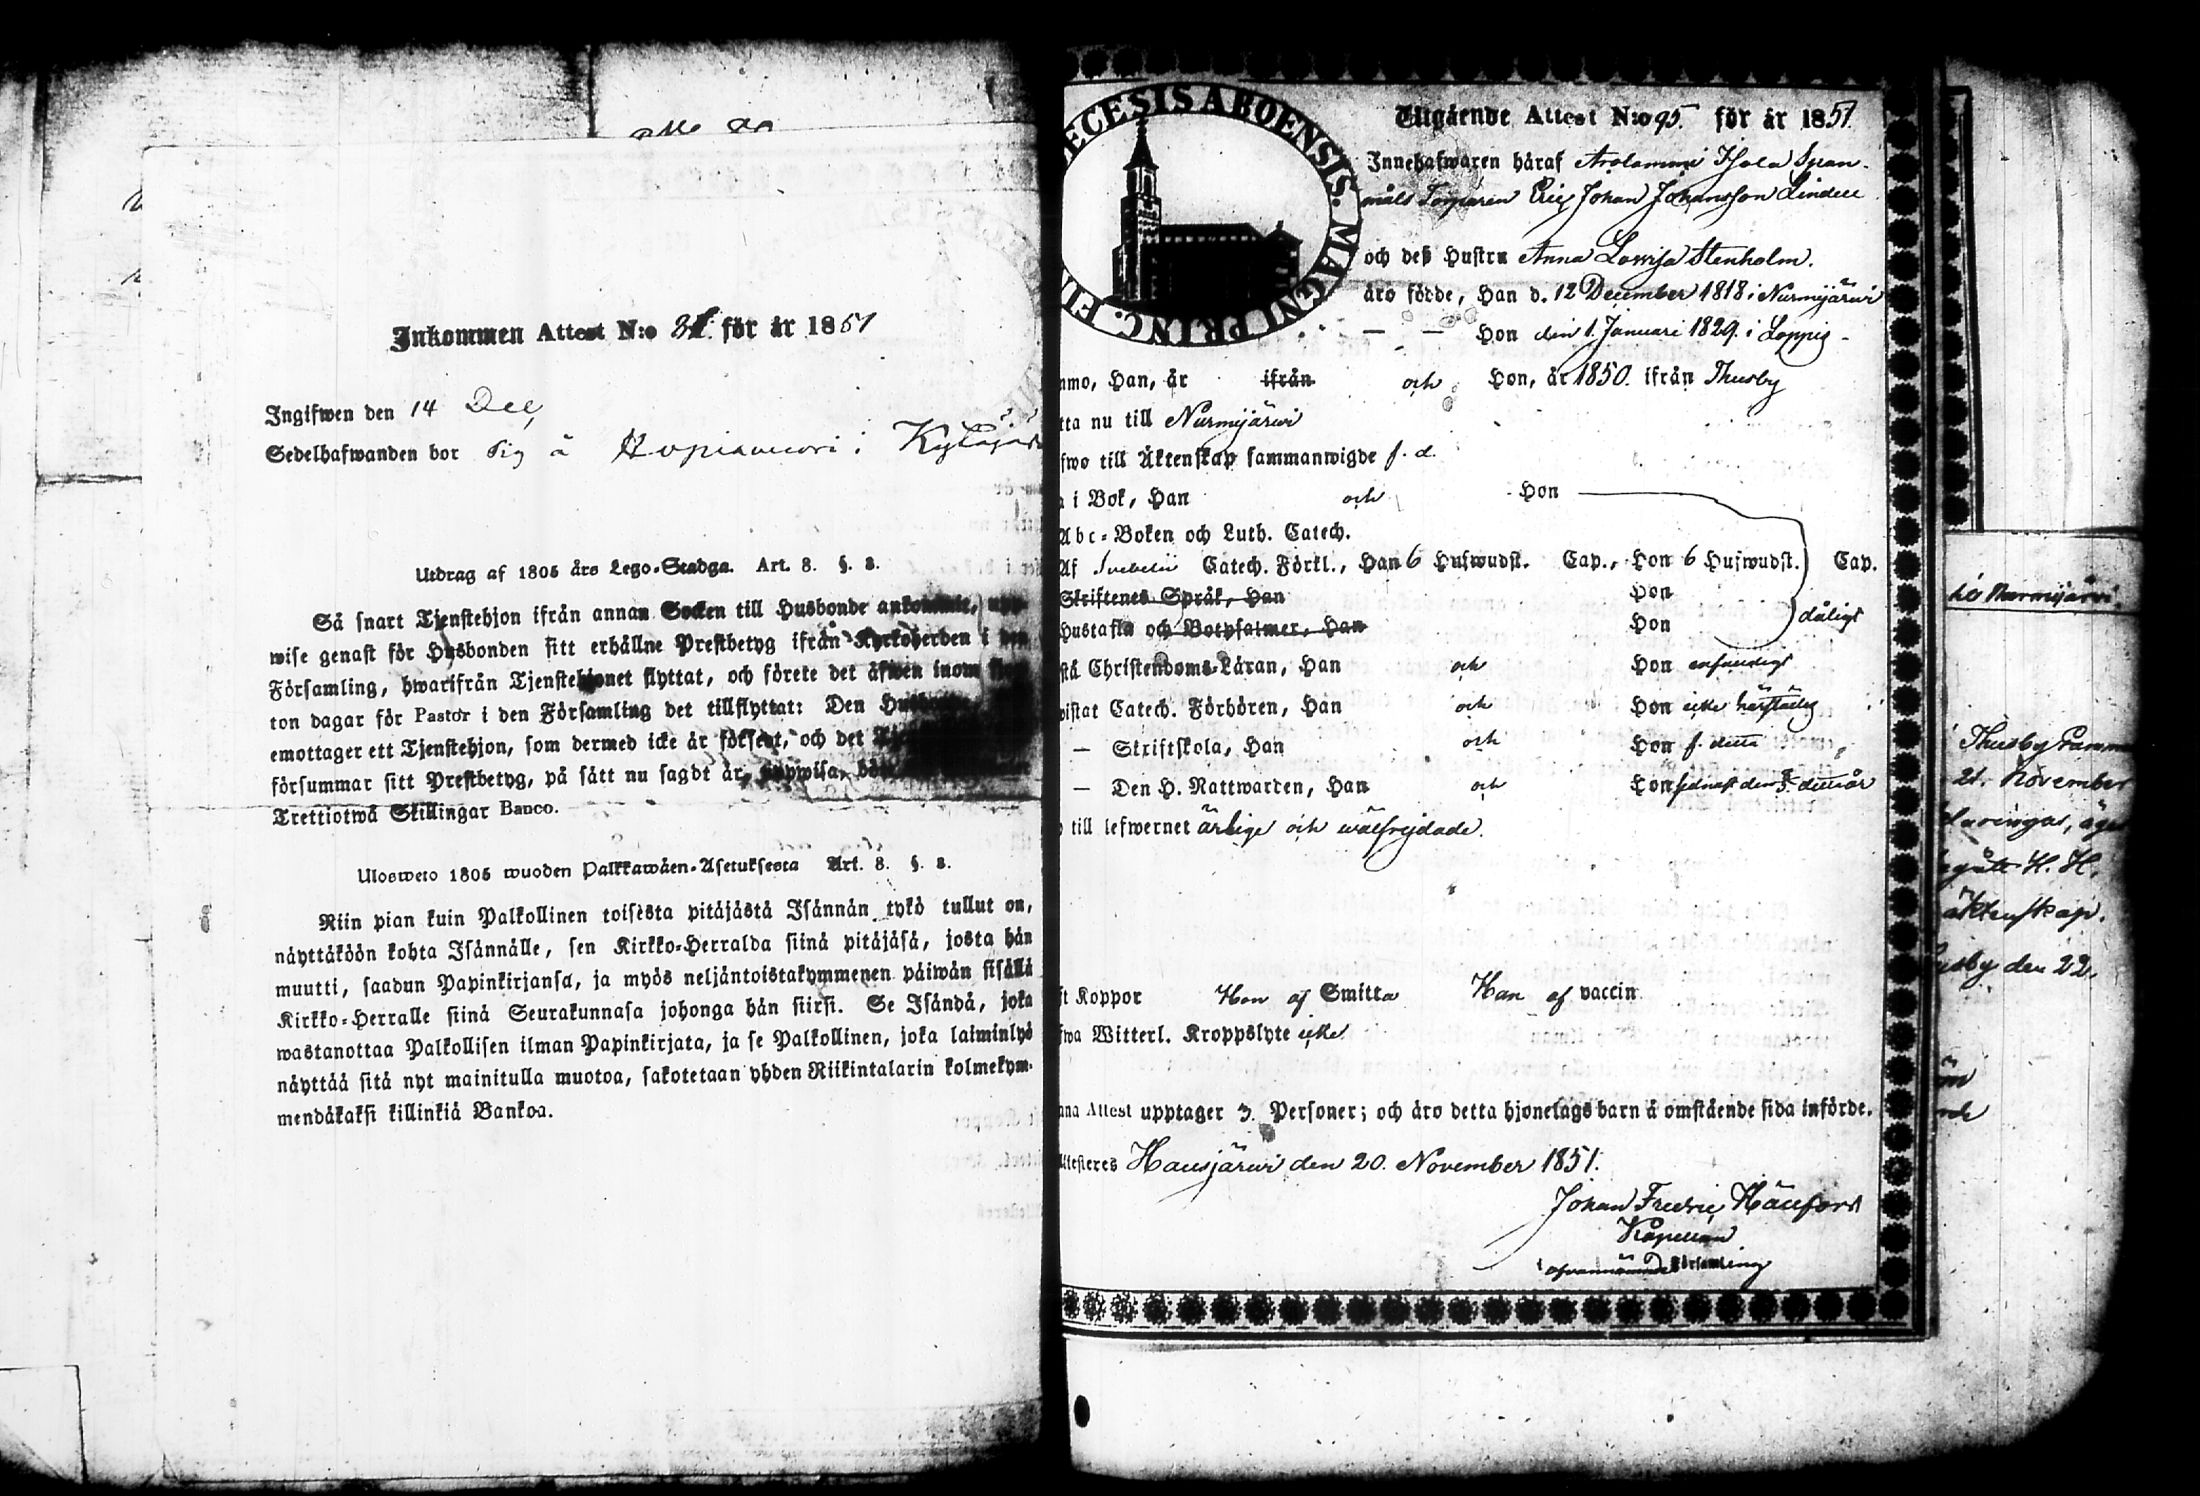 Inkommen Attest N:o för år 1851
Ingifwen den 14 Dec,
Sedelhafwanden bor sig å i
Utdrag af 1805 års Lego-Stadga. Art. 8. §. 8.
Så snart Tjenstehjon ifrån annan Socken till Husbonde ankommit, upp-
wise genast för Husbonden sitt erhållne Prestbetyg ifrån Kyrkoherden i den
Församling, hwarifrån Tjenstehjonet flyttat, och förete det äfwen inom fjor-
ton dagar för Pastor i den Församling det tillflyttat: Den
emottager ett Tjenstehjon, som dermed icke är försedt, och det
försummar sitt Prestbetyg, på sätt nu sagdt är, uppwisa,
Trettiotwå Skillingar Banco.
Ulosweto 1805 wuoden Palkkawäen-Asetuksesta Art. 8. §. 8.
Niin pian kuin Palkollinen toisesta pitäjästä Isännän tykö tullut on,
näyttäköön kohta Isännälle, sen Kirkko-Herralda siinä pitäjäsä, josta hän
muutti, saadun Papinkirjansa, ja myös neljäntoistakymmenen päiwän sisällä
Kirkko-Herralle siinä Seurakunnasa johonga hän siirsi. Se Isändä, joka
wastanottaa Palkollisen ilman Papinkirjata, ja se Palkollinen, joka laiminlyö
näyttää sitä nyt mainitulla muotoa, sakotetaan yhden Riikintalarin kolmekym-
mendäkaksi killinkiä Bankoa.
ECESIS ABOENSIS. MAGNI PRINC. FI
Utgående Attest N:o 95. för år 1851.
Innehafwaren häraf Arolammi Isola Span-
måls Torparen Eric Johan Johansson Lindell
och deß Hustru Anna Lovisa Stenholm.
äro födde, Han d. 12 December 1818 i Nurmijärwi
— — Hon den 1. Januari 1829. i Loppis -
mmo, Han, år ifrån och Hon, år 1850. ifrån Thusby
tta nu till Nurmijärwi
fwo till Äktenskap sammanwigde f. d.
a i Bok, Han och Hon
Abc-Boken och Luth. Catech.
Af Svebelii Catech. Förkl., Han 6 Hufwudst. Cap., Hon 6 Hufwudst. Cap.
Skriftenes Språk, Han Hon
Hustafla och Botpsalmer, Han Hon dåligt
stå Christendoms-Läran, Han och Hon enfaldigt
wistat Catech. Förhören, Han och Hon icke
— Skriftskola, Han och Hon f. detta
— Den H. Nattwarden, Han och Hon sednast den
till lefwernet ärlige och wälfrejdade.
ft Koppor Hon af Smitta Han af vaccin
fwa Witterl. Kroppslyte icke
nna Attest upptager 3. Personer; och äro detta hjonelags barn å omstående sida införde.
Attesteres Hausjärwi den 20. November 1851.
Johan Fredric
Kapellan
i ofvannämnde Församling
Nurmijärwi.
Thusby
21. November
H. H.
äktenskap.
usby den 22.